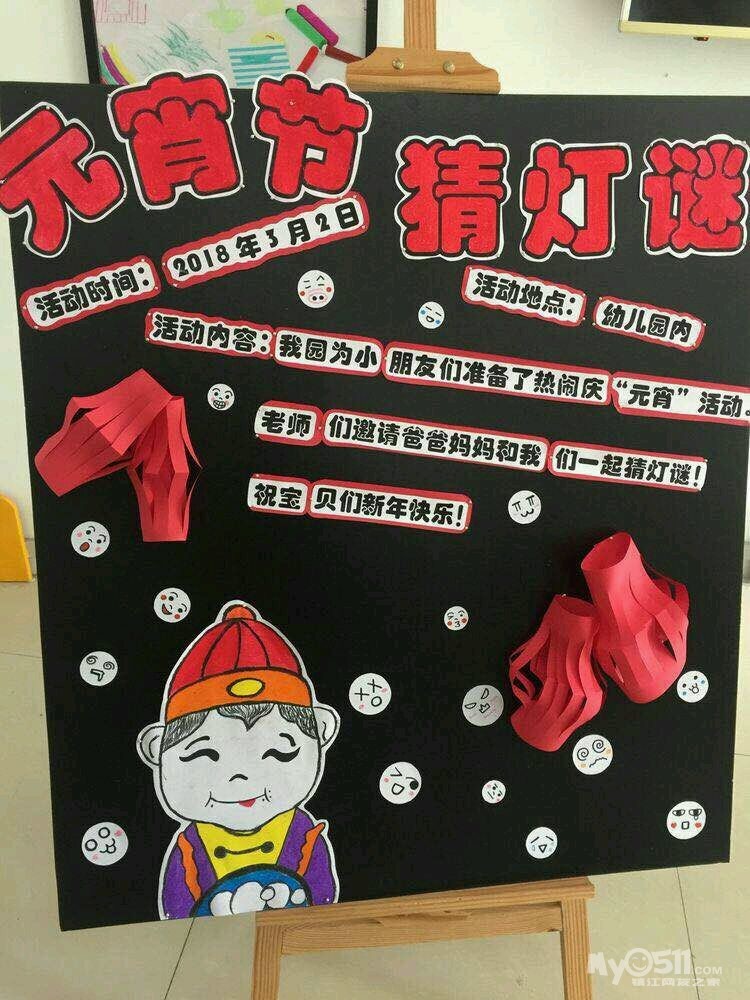 元宵节 猜灯谜
活动时间：2018年3月2日
活动地点：幼儿园内
活动内容：我园为小朋友们准备了热闹庆“元宵”活动。
老师们邀请爸爸妈妈和我们一起猜灯谜！
祝宝贝们新年快乐！
My0511.COM
镇江网友之家